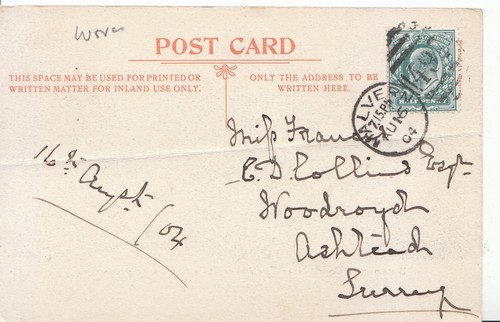 Worcs
POST CARD
THIS SPACE MAY BE USED FOR PRINTED OR
WRITTEN MATTER FOR INLAND USE ONLY.
ONLY THE ADDRESS TO BE
WRITTEN HERE.
HALFPENNY
MALVE
7 15 PM
AU 16
04
Miss Frances
C. D. Collins Esqr.
Woodroyd
Ashtead
Surrey
16th Augst/04